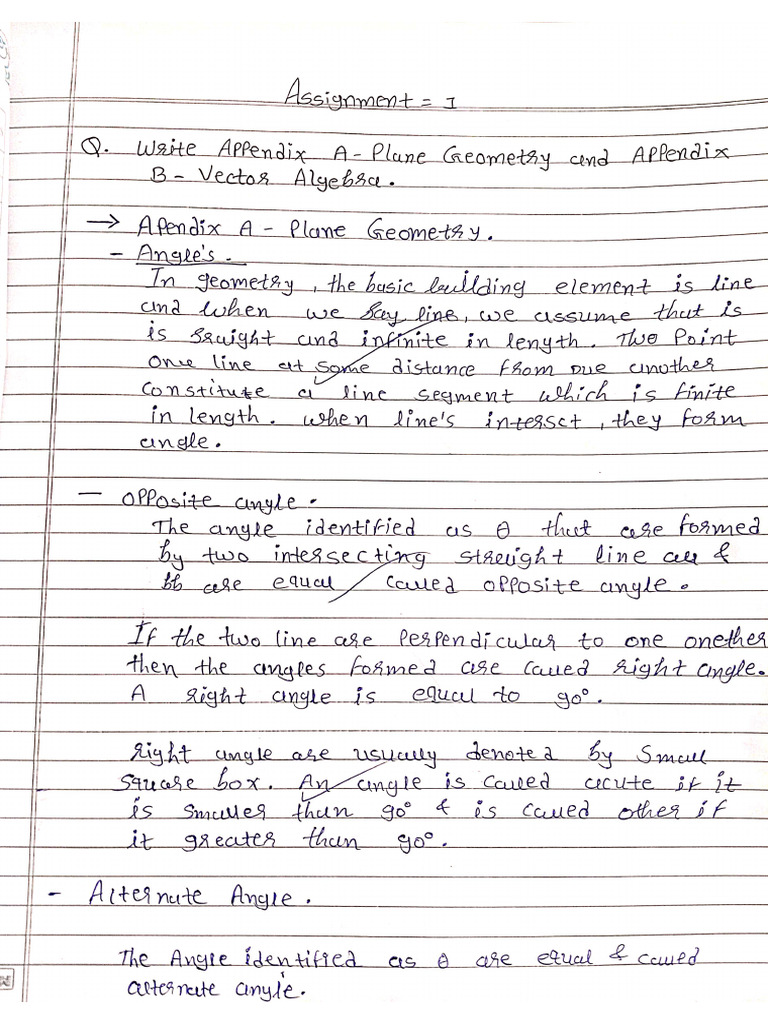 Assignment = 1
Q. Write Appendix A - Plane Geometry and Appendix
B - Vector Algebra.
→ Apendix A - Plane Geometry.
- Angle's.
In geometry, the basic building element is line
and when we say line, we assume that is
is sraight and infinite in length. Two Point
one line at some distance from one another
constitute a line segment which is finite
in length. when line's intersct, they form
angle.
- opposite angle.
The angle identified as θ that are formed
by two intersecting streight line aa &
bb are equal called opposite angle.
If the two line are perpendicular to one onether
then the angles formed are called right angle.
A right angle is equal to 90°.
right angle are usually denoted by small
square box. An angle is called acute if it
is smaller than 90° & is called other if
it greater than 90°.
- Alternate Angle.
The Angle identified as θ are equal & called
alternate angle.